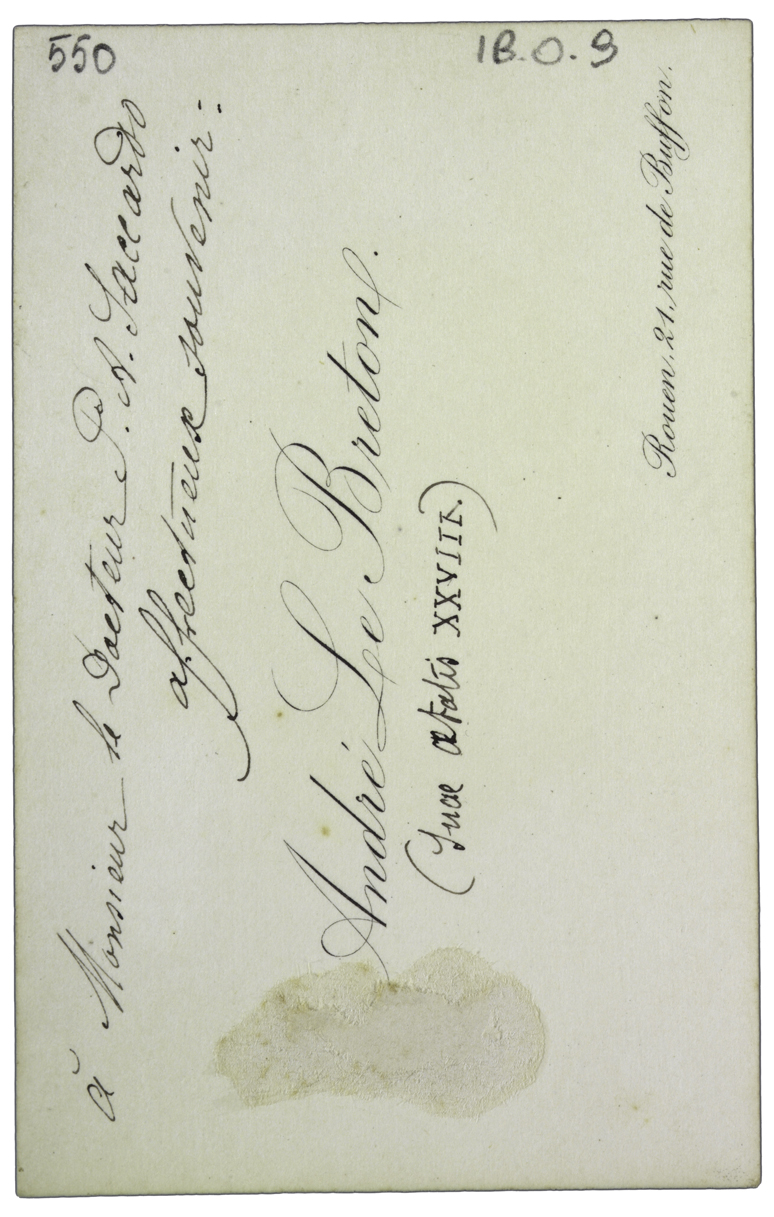 550
IB.O.9
à Monsieur le Docteur P. A. Saccardo
affectueux souvenir.
André Le Breton.
(Suae ætatis XXVIII.)
Rouen, 21, rue de Buffon.